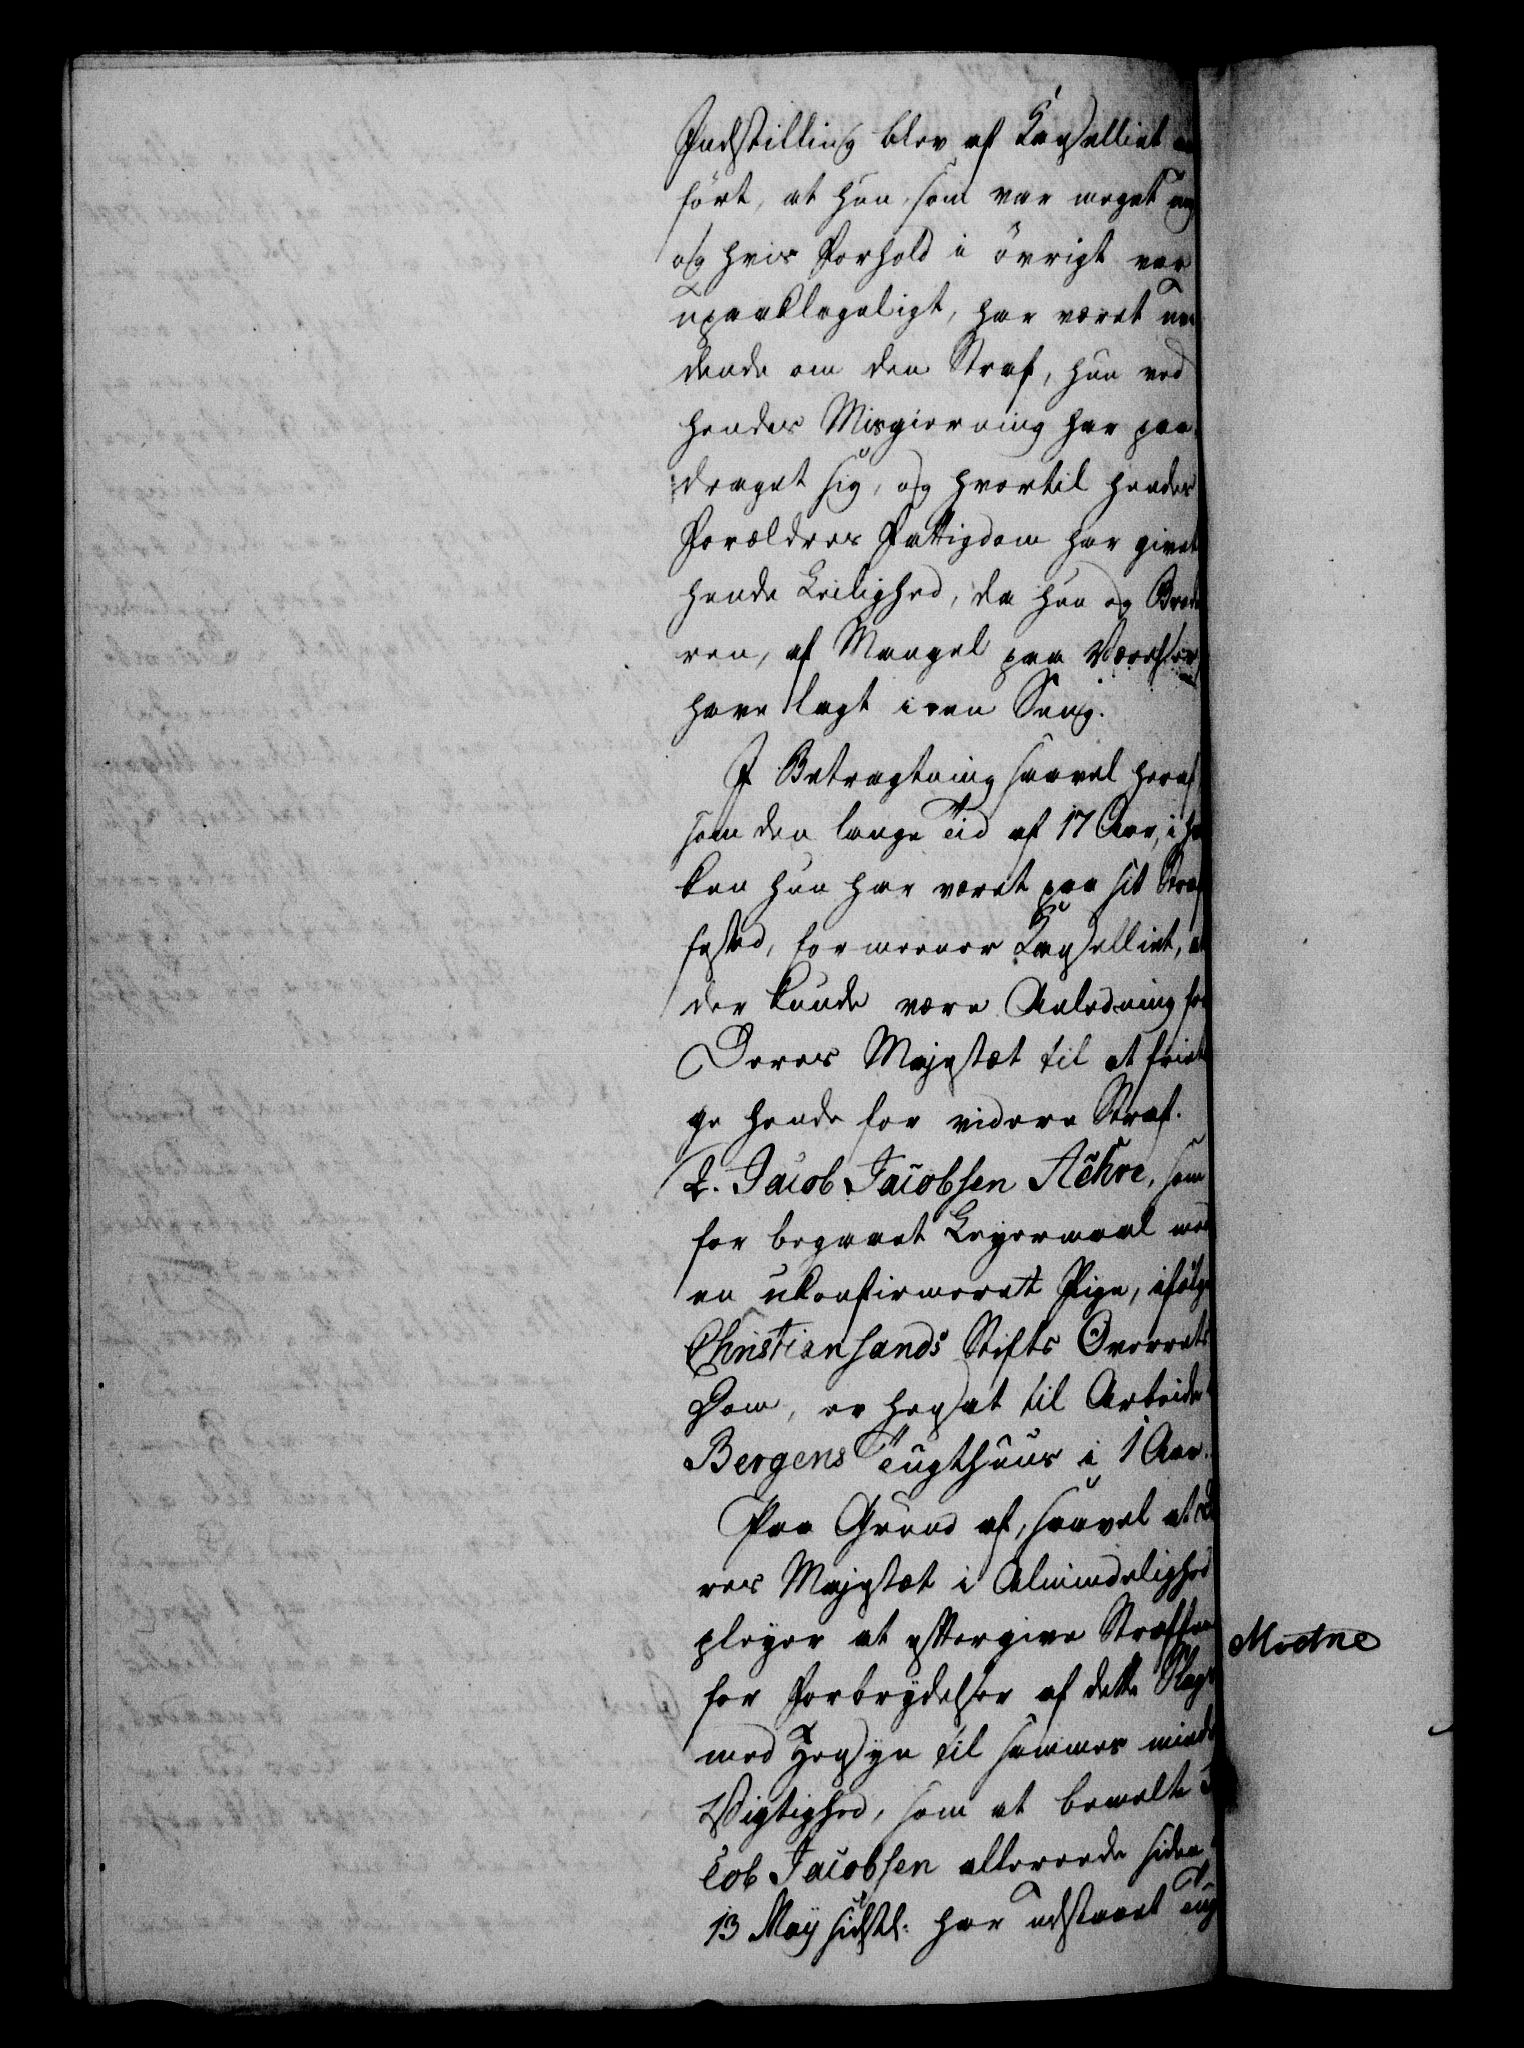 Indstilling blev af Cancelliet an
ført, at hun, som var meget ung
og hvis Forhold i övrigt var
upaaklageligt, har været uvi
dende om den Straf, hun ved
hendes Misgierning har paa
draget sig, og hvortil hendes
Forældres Fattigdom har givet
hende Leilighed, da hun og Brode
ren, af Mangel paa Værelser
have lagt i een Seng.
I Betragtning saavel heraf
som den lange Tid af 17 Aar, i hvil
ken hun har været paa sit Straf
fested, formeener Cancelliet, at
der kunde være Anledning for
Deres Majestæt til at frieta
ge hende for videre Straf.
2. Jacob Jacobsen Ackre, som
for begaaet Leyermaal med
en ukonfirmeret Pige, ifølge
Christiansands Stifts Overrets
Dom, er hensat til Arbeide i
Bergens Tugthuus i 1 Aar.
Paa Grund af, saavel at De
res Majestæt i Almindelighed
pleyer at eftergive Straffen
for Forbrydelser af dette Slags
med Hensyn til sammes mindre
Vigtighed, som at bemelte Ja
cob Jacobsen allerede siden
13 May sidstl: har udstaaet Tug